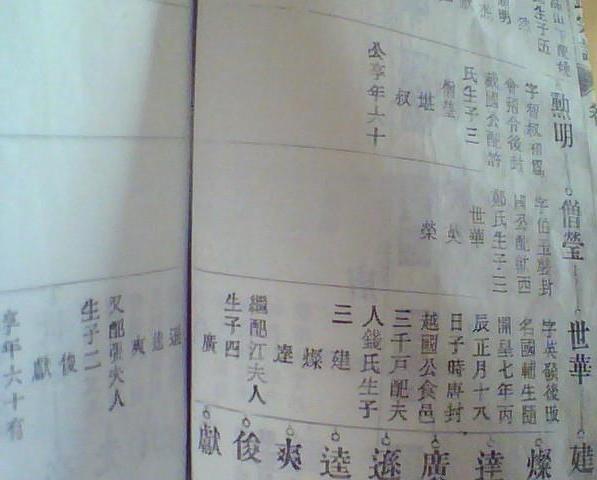 生子五
勳明
會稽令後封
戴國公配許
氏生子三
僧瑩
堪
叔
公享年六十
僧瑩
字伯玉襲封
鄭氏生子二
世華
榮
世華
字英發後改
名國輔生隨
開皇七年丙
辰正月十八
日子時唐封
越國公食邑
三千戶配夫
人錢氏生子
三 建
燦
達
繼配江夫人
生子四
廣
遜
逵
爽
又配張夫人
生子二
俊
獻
享年六十有
建
燦
達
廣
遜
逵
爽
俊
獻